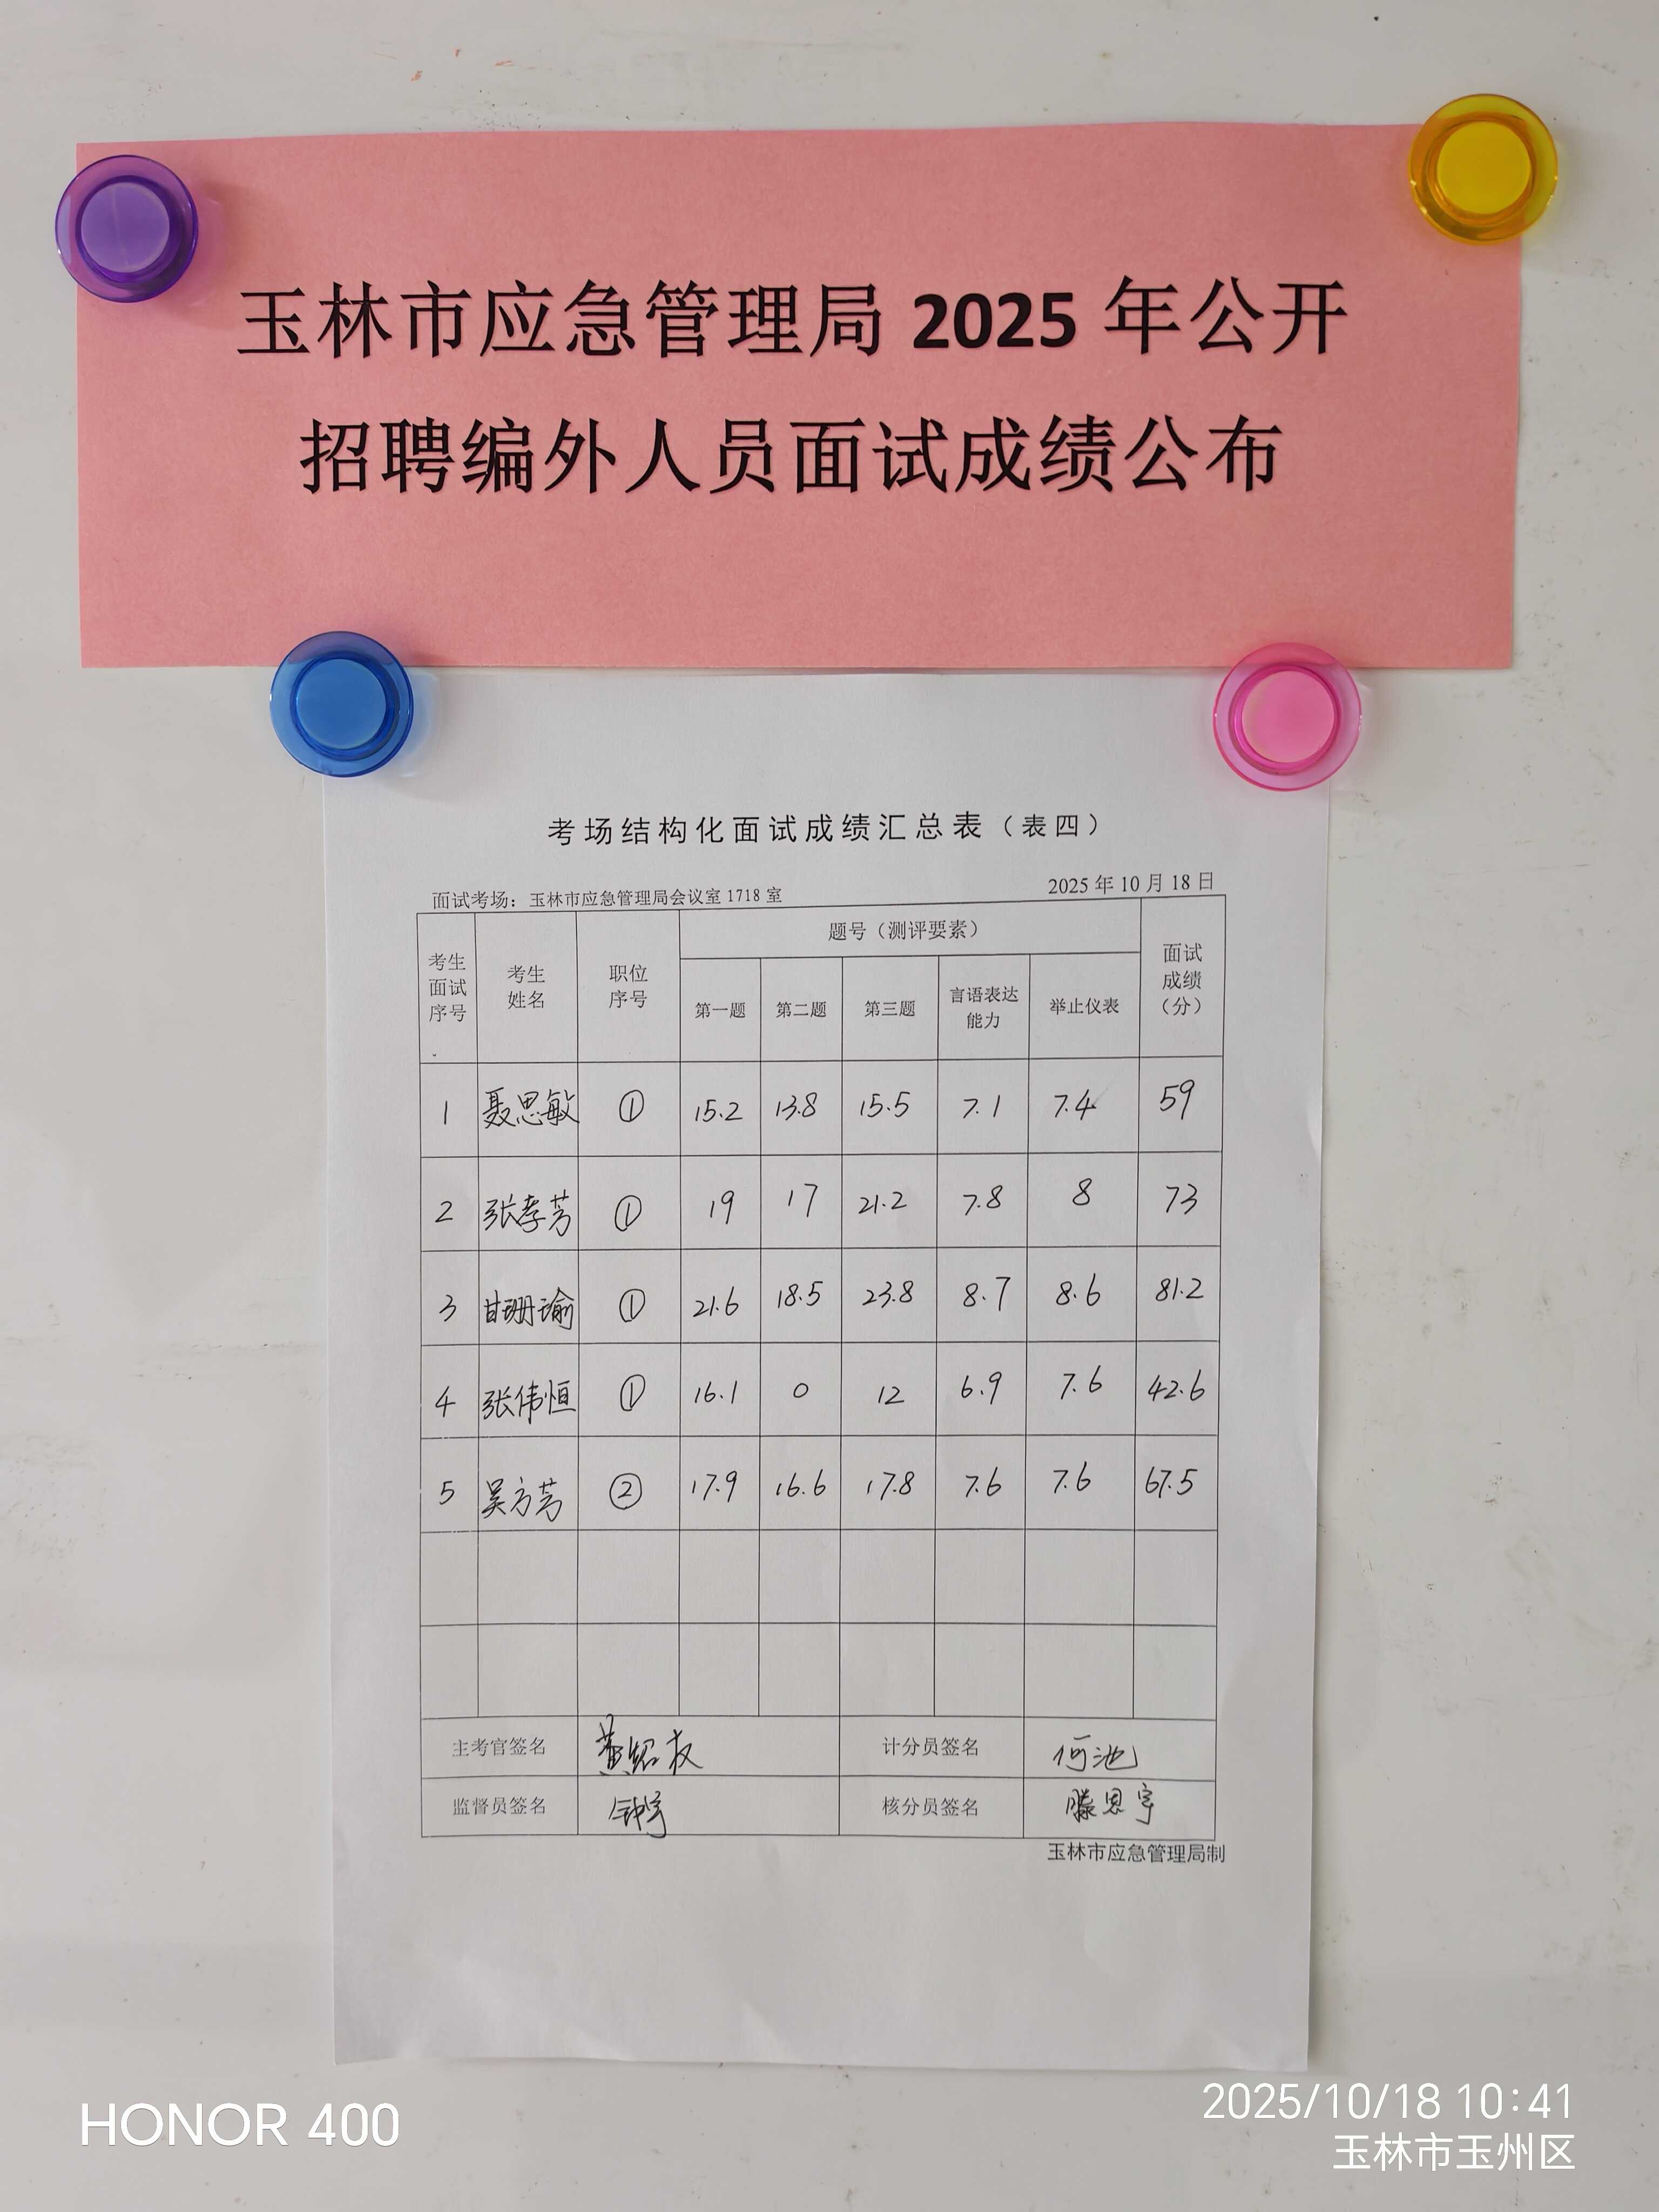 玉林市应急管理局 2025 年公开
招聘编外人员面试成绩公布
考场结构化面试成绩汇总表（表四）
面试考场：玉林市应急管理局会议室 1718 室 2025 年 10 月 18 日
考生面试序号 考生姓名 职位序号 题号（测评要素） 面试成绩（分）
第一题 第二题 第三题 言语表达能力 举止仪表
1 聂思敏 ① 15.2 13.8 15.5 7.1 7.4 59
2 张孝芳 ① 19 17 21.2 7.8 8 73
3 甘珊瑜 ① 21.6 18.5 23.8 8.7 8.6 81.2
4 张伟恒 ① 16.1 0 12 6.9 7.6 42.6
5 吴方芳 ② 17.9 16.6 17.8 7.6 7.6 67.5
主考官签名 计分员签名 何池
监督员签名 核分员签名 滕恩宇
玉林市应急管理局制
HONOR 400
2025/10/18 10:41
玉林市玉州区